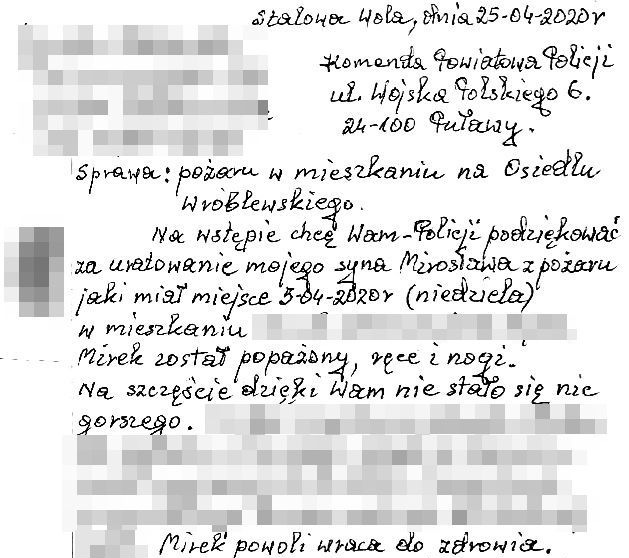 Stalowa Wola, dnia 25-04-2020r
Komenda Powiatowa Policji
ul. Wojska Polskiego 6.
24-100 Puławy.
Sprawa: pożaru w mieszkaniu na Osiedlu
Wróblewskiego.
Na wstępie chcę Wam-Policji podziękować
za uratowanie mojego syna Mirosława z pożaru
jaki miał miejsce 5-04-2020r (niedziela)
w mieszkaniu
Mirek został popażony, ręce i nogi.
Na szczęście dzięki Wam nie stało się nic
gorszego.
Mirek powoli wraca do zdrowia.